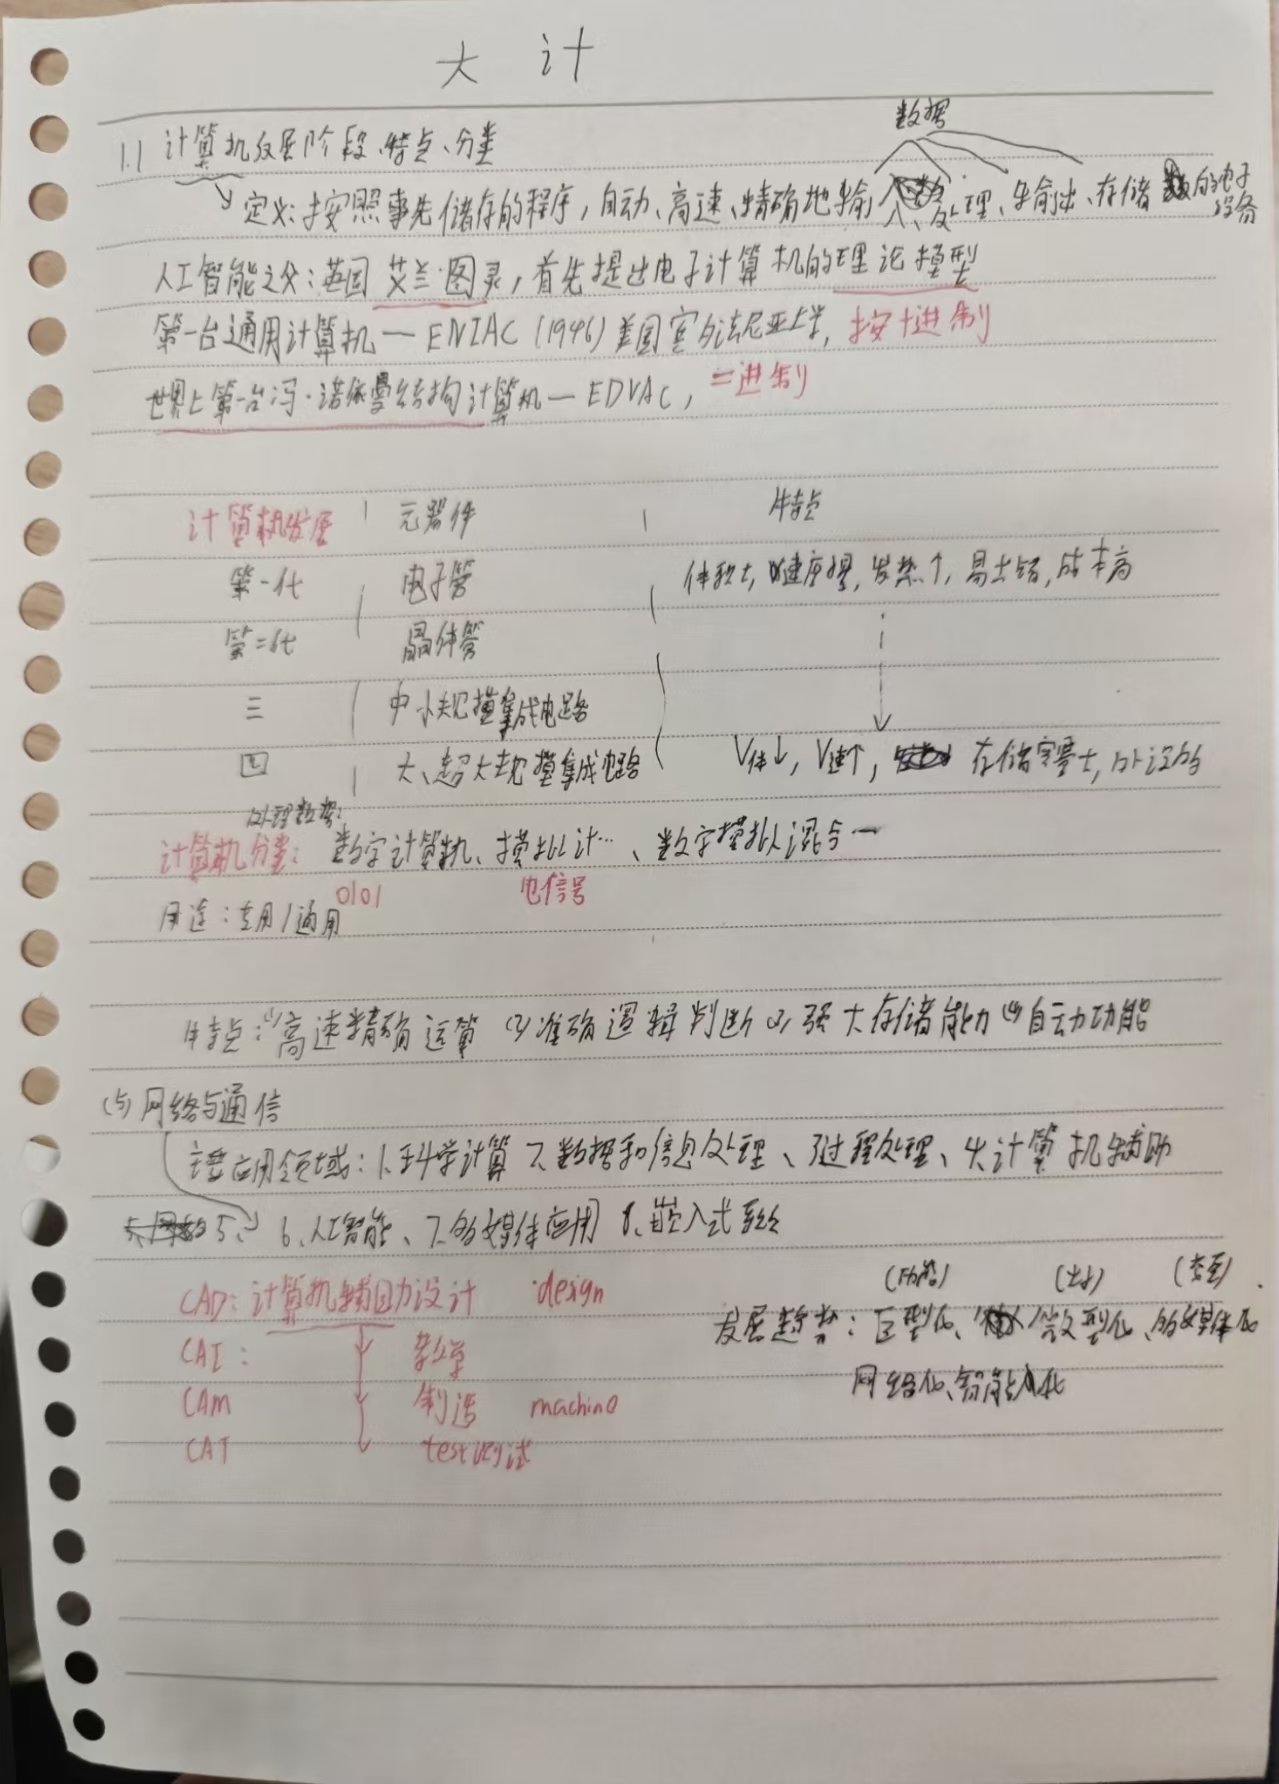 大 计
数据
1.1 计算机发展阶段、特点、分类
定义：按照事先储存的程序，自动、高速、精确地输入、处理、输出、存储的电子设备
人工智能之父：英国 艾兰·图灵，首先提出电子计算机的理论模型
第一台通用计算机 — ENIAC (1946) 美国宾夕法尼亚大学，按十进制
世界上第一台冯·诺依曼结构计算机 — EDVAC，二进制
计算机发展 元器件 特点
第一代 电子管 体积大，速度慢，发热↑，易出错，成本高
第二代 晶体管
三 中小规模集成电路
四 大、超大规模集成电路 V体↓，V速↑， 存储容量大，外设多
处理数据：
计算机分类：数字计算机、模拟计…、数字模拟混合一
0101 电信号
用途：专用/通用
特点：(1)高速精确运算 (2)准确逻辑判断 (3)强大存储能力 (4)自动功能
(5)网络与通信
主要应用领域：1.科学计算 2.数据和信息处理、3过程处理、4.计算机辅助
5、 6、人工智能、7.多媒体应用 8、嵌入式系统
CAD：计算机辅助设计 design
(功能) (大小) (交互)
发展趋势：巨型化、微型化、多媒体化
CAI： 教学
网络化、智能化
CAM 制造 machine
CAT test测试